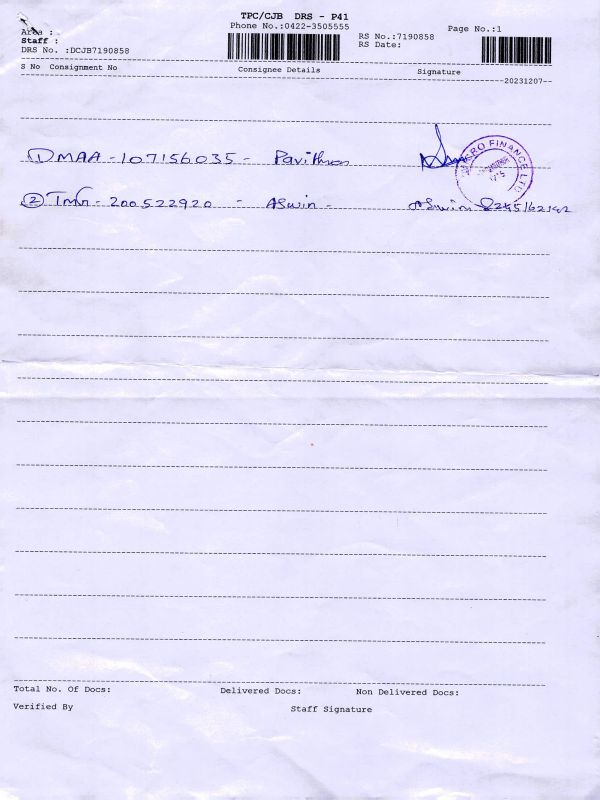 TPC/CJB DRS - P41
Phone No.:0422-3505555
Page No.:1
Area :
Staff :
RS No.:7190858
RS Date:
DRS No. :DCJB7190858
S No Consignment No Consignee Details Signature
20231207
① MAA - 107156035 - Pavithran
FINANCE LTD
② - 200522920 - Aswin - Aswin
Total No. Of Docs: Delivered Docs: Non Delivered Docs:
Verified By Staff Signature